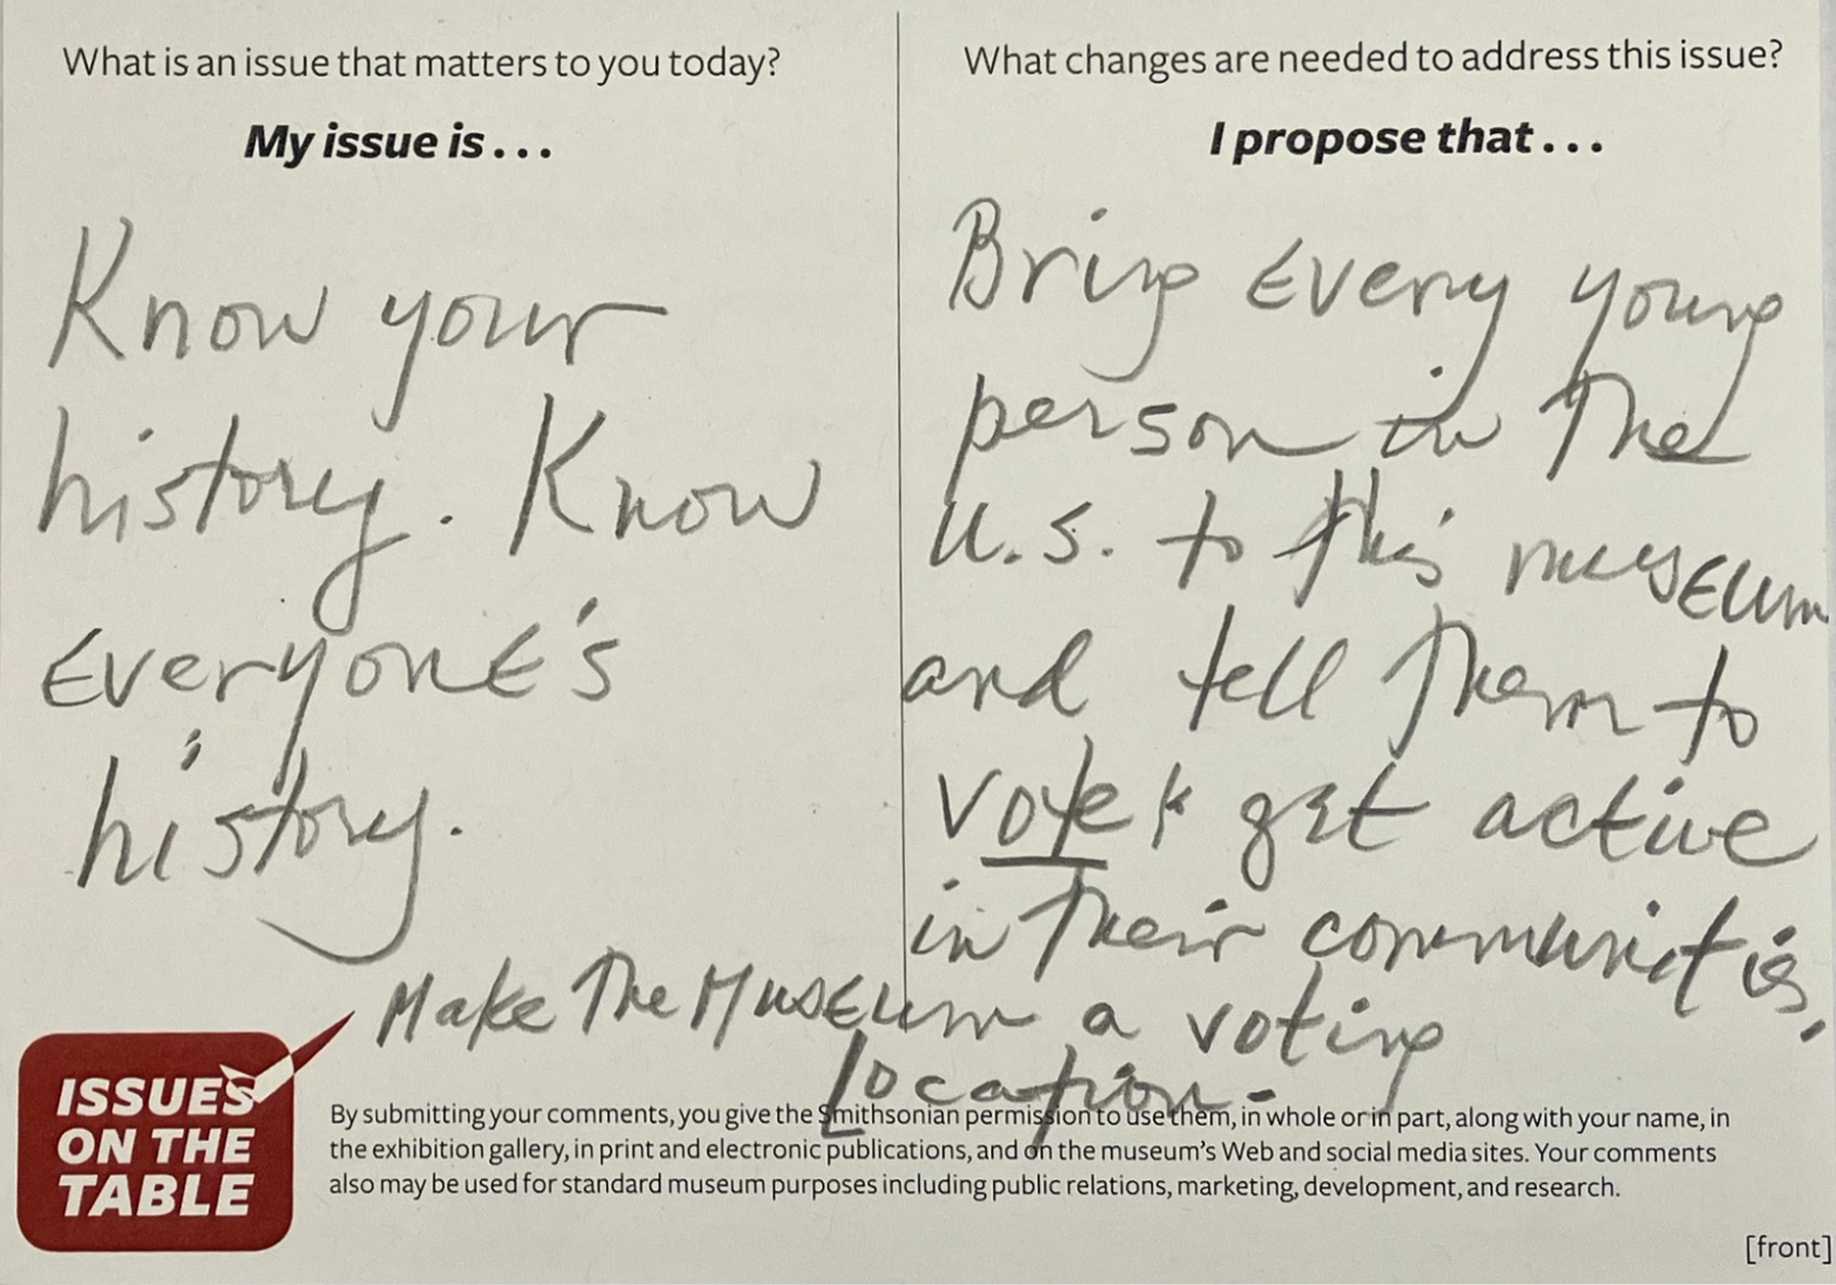 What is an issue that matters to you today?
My issue is . . .
Know your
history. Know
Everyone's
history.
What changes are needed to address this issue?
I propose that . . .
Bring Every young
person in the
U.S. to this museum
and tell them to
vote & get active
in their communities.
Make The Museum a voting
Location.
ISSUES
ON THE
TABLE
By submitting your comments, you give the Smithsonian permission to use them, in whole or in part, along with your name, in
the exhibition gallery, in print and electronic publications, and on the museum's Web and social media sites. Your comments
also may be used for standard museum purposes including public relations, marketing, development, and research.
[front]